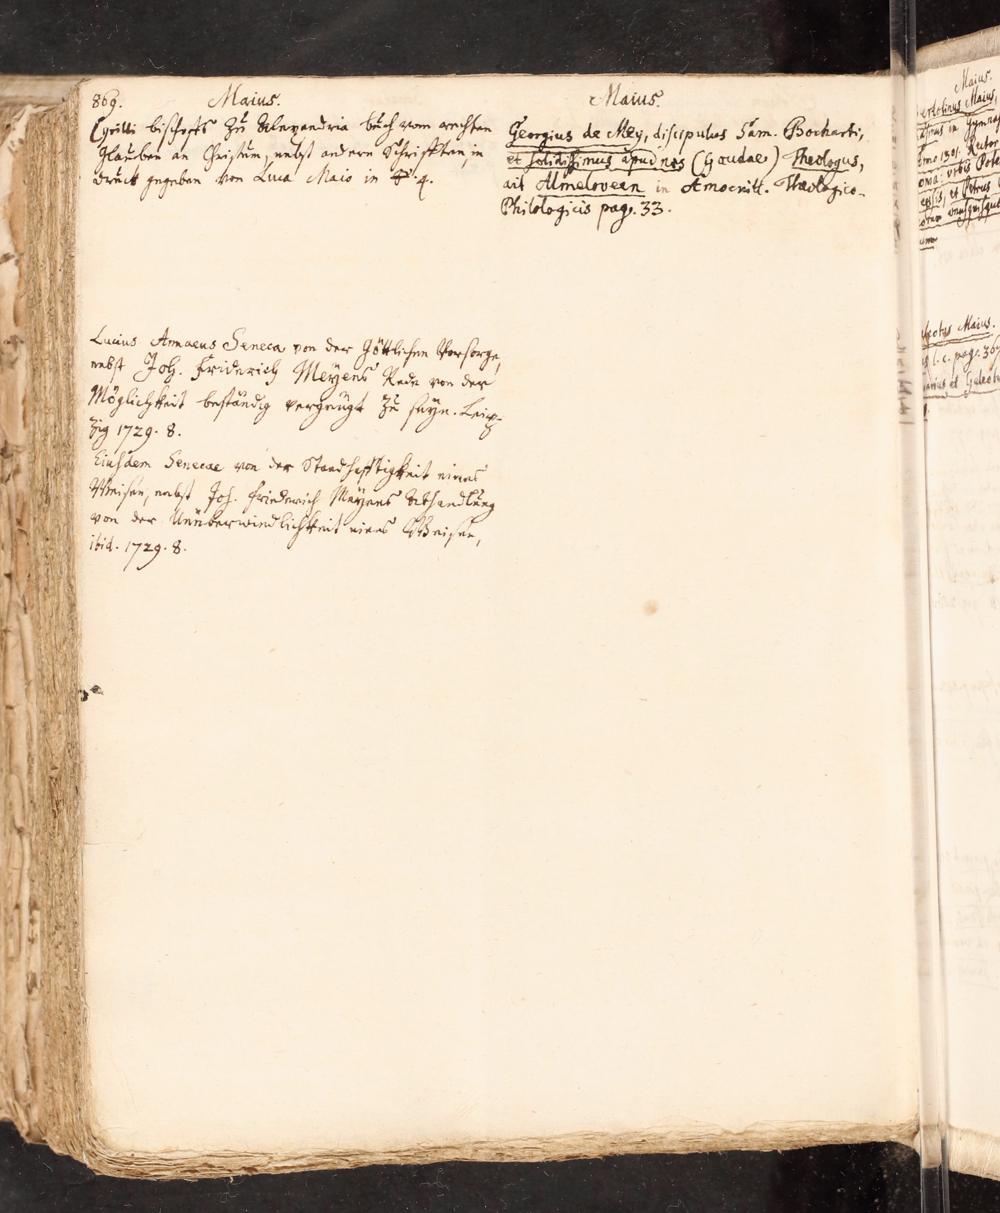 869. Maius.
Cyrilli bischoffs zu Alexandria buch vom rechten
Glauben an Christum, nebst andern Schrifften, in
druck gegeben von Luca Maio in 4.
Lucius Annaeus Seneca von der Göttlichen Vorsorge,
nebst Joh. Friderich Meyens Rede von der
Möglichkeit beständig vergnügt zu seyn. Leip-
zig 1729. 8.
Eiusdem Senecae von der Standhafftigkeit eines
Weisen, nebst Joh. Friederich Meyens Abhandlung
von der Unüberwindlichkeit eines Weisen,
ibid. 1729. 8.
Maius.
Georgius de Mey, discipulus Sam. Bocharti,
et solidissimus apud nos (Goudae) Theologus,
ait Almeloveen in Amoenitt. Theologico-
Philologicis pag. 33.
Maius.
Maius,
in Gymnas
Rector
urbis
et Petrus
Maius.
l. c. pag. 36
et